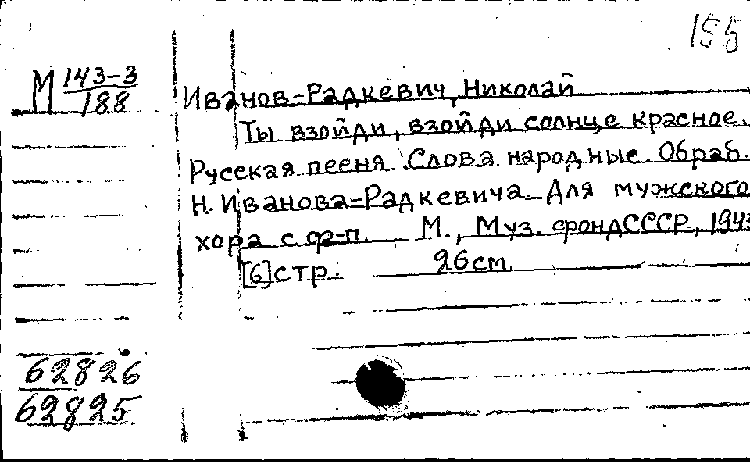 155
М 143-3
188
Иванов-Радкевич, Николай
Ты взойди, взойди солнце красное.
Русская песня. Слова народные. Обраб.
Н. Иванова-Радкевича. Для мужского
хора с ф-п. М., Муз. фонд СССР, 1943
[6] стр. 26 cm
62826
62825